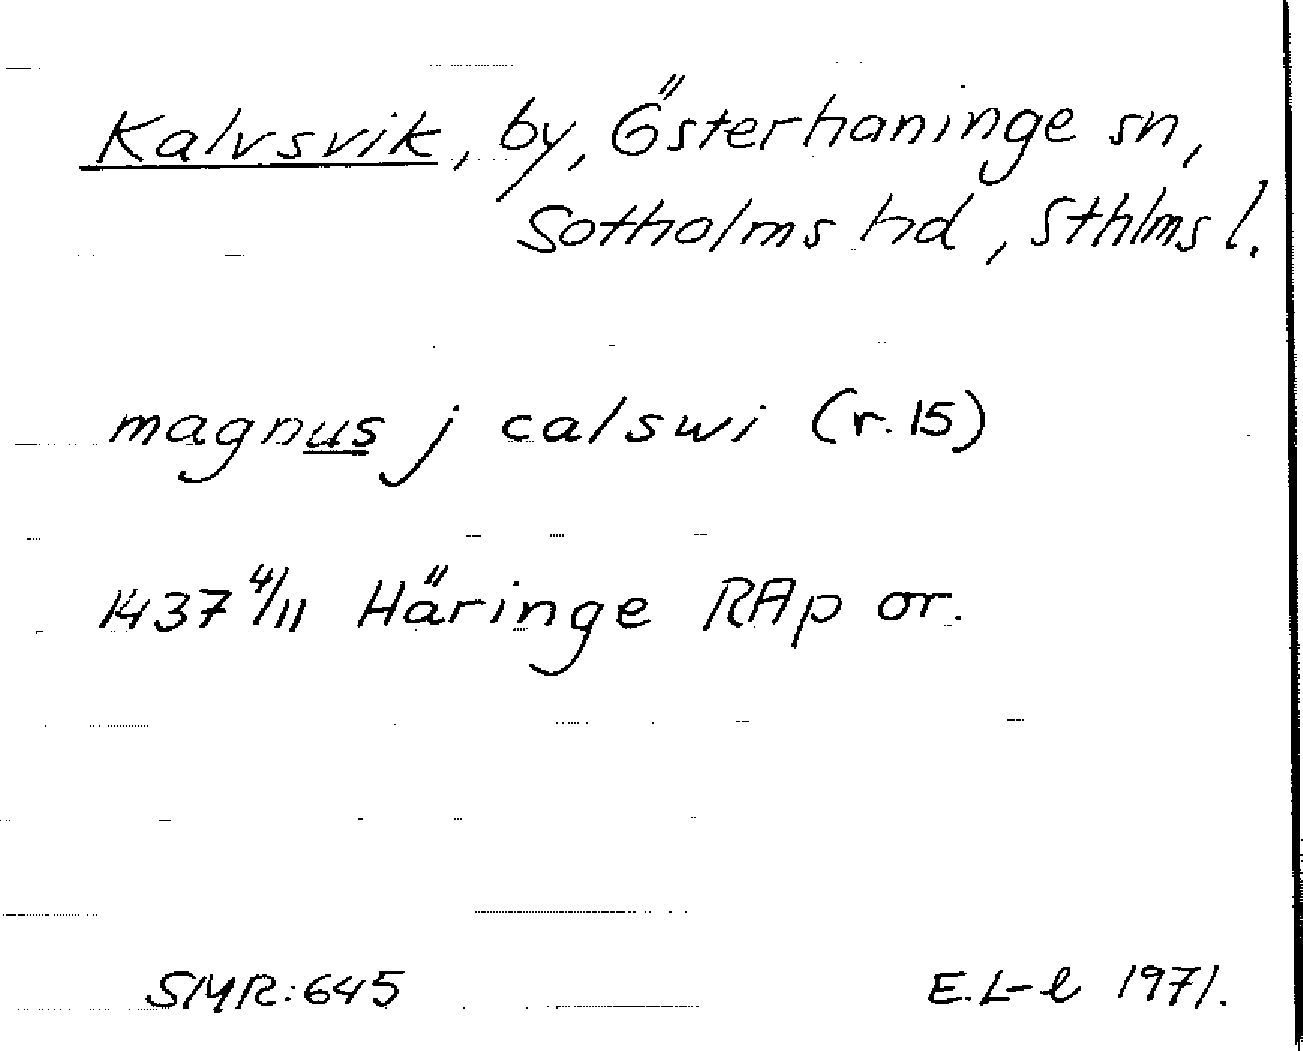 Kalvsvik, by, Österhaninge sn,
Sotholms hd, Sthlms l.
magnus j calswi (r. 15)
1437 4/11 Häringe RAp or.
SMR: 645
E. L-l 1971.